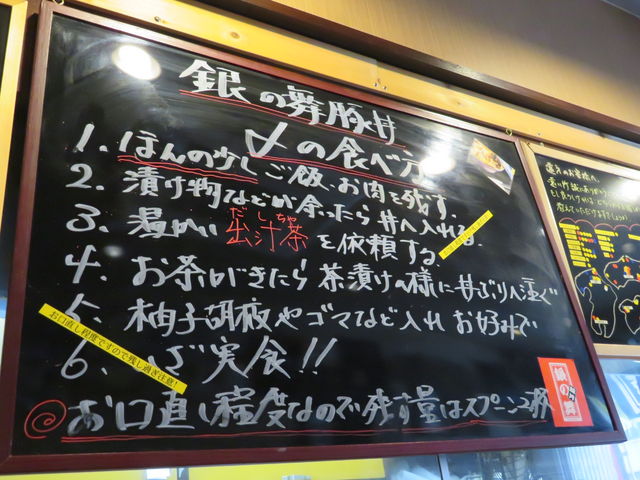 銀の舞豚丼
〆の食べ方
1. ほんの少しご飯、お肉を残す。
2. 漬け物などが余ったら丼へ入れる。
3. 温かい出汁茶を依頼する。
だしちゃ
4. お茶がきたら茶漬けの様に丼ぶりへ注ぐ
5. 柚子胡椒やゴマなど入れお好みで
6. いざ実食!!
お口直し程度ですので残し過ぎ注意!
お口直し程度なので残す量はスプーン2杯
銀の舞
遠方のお客様へ